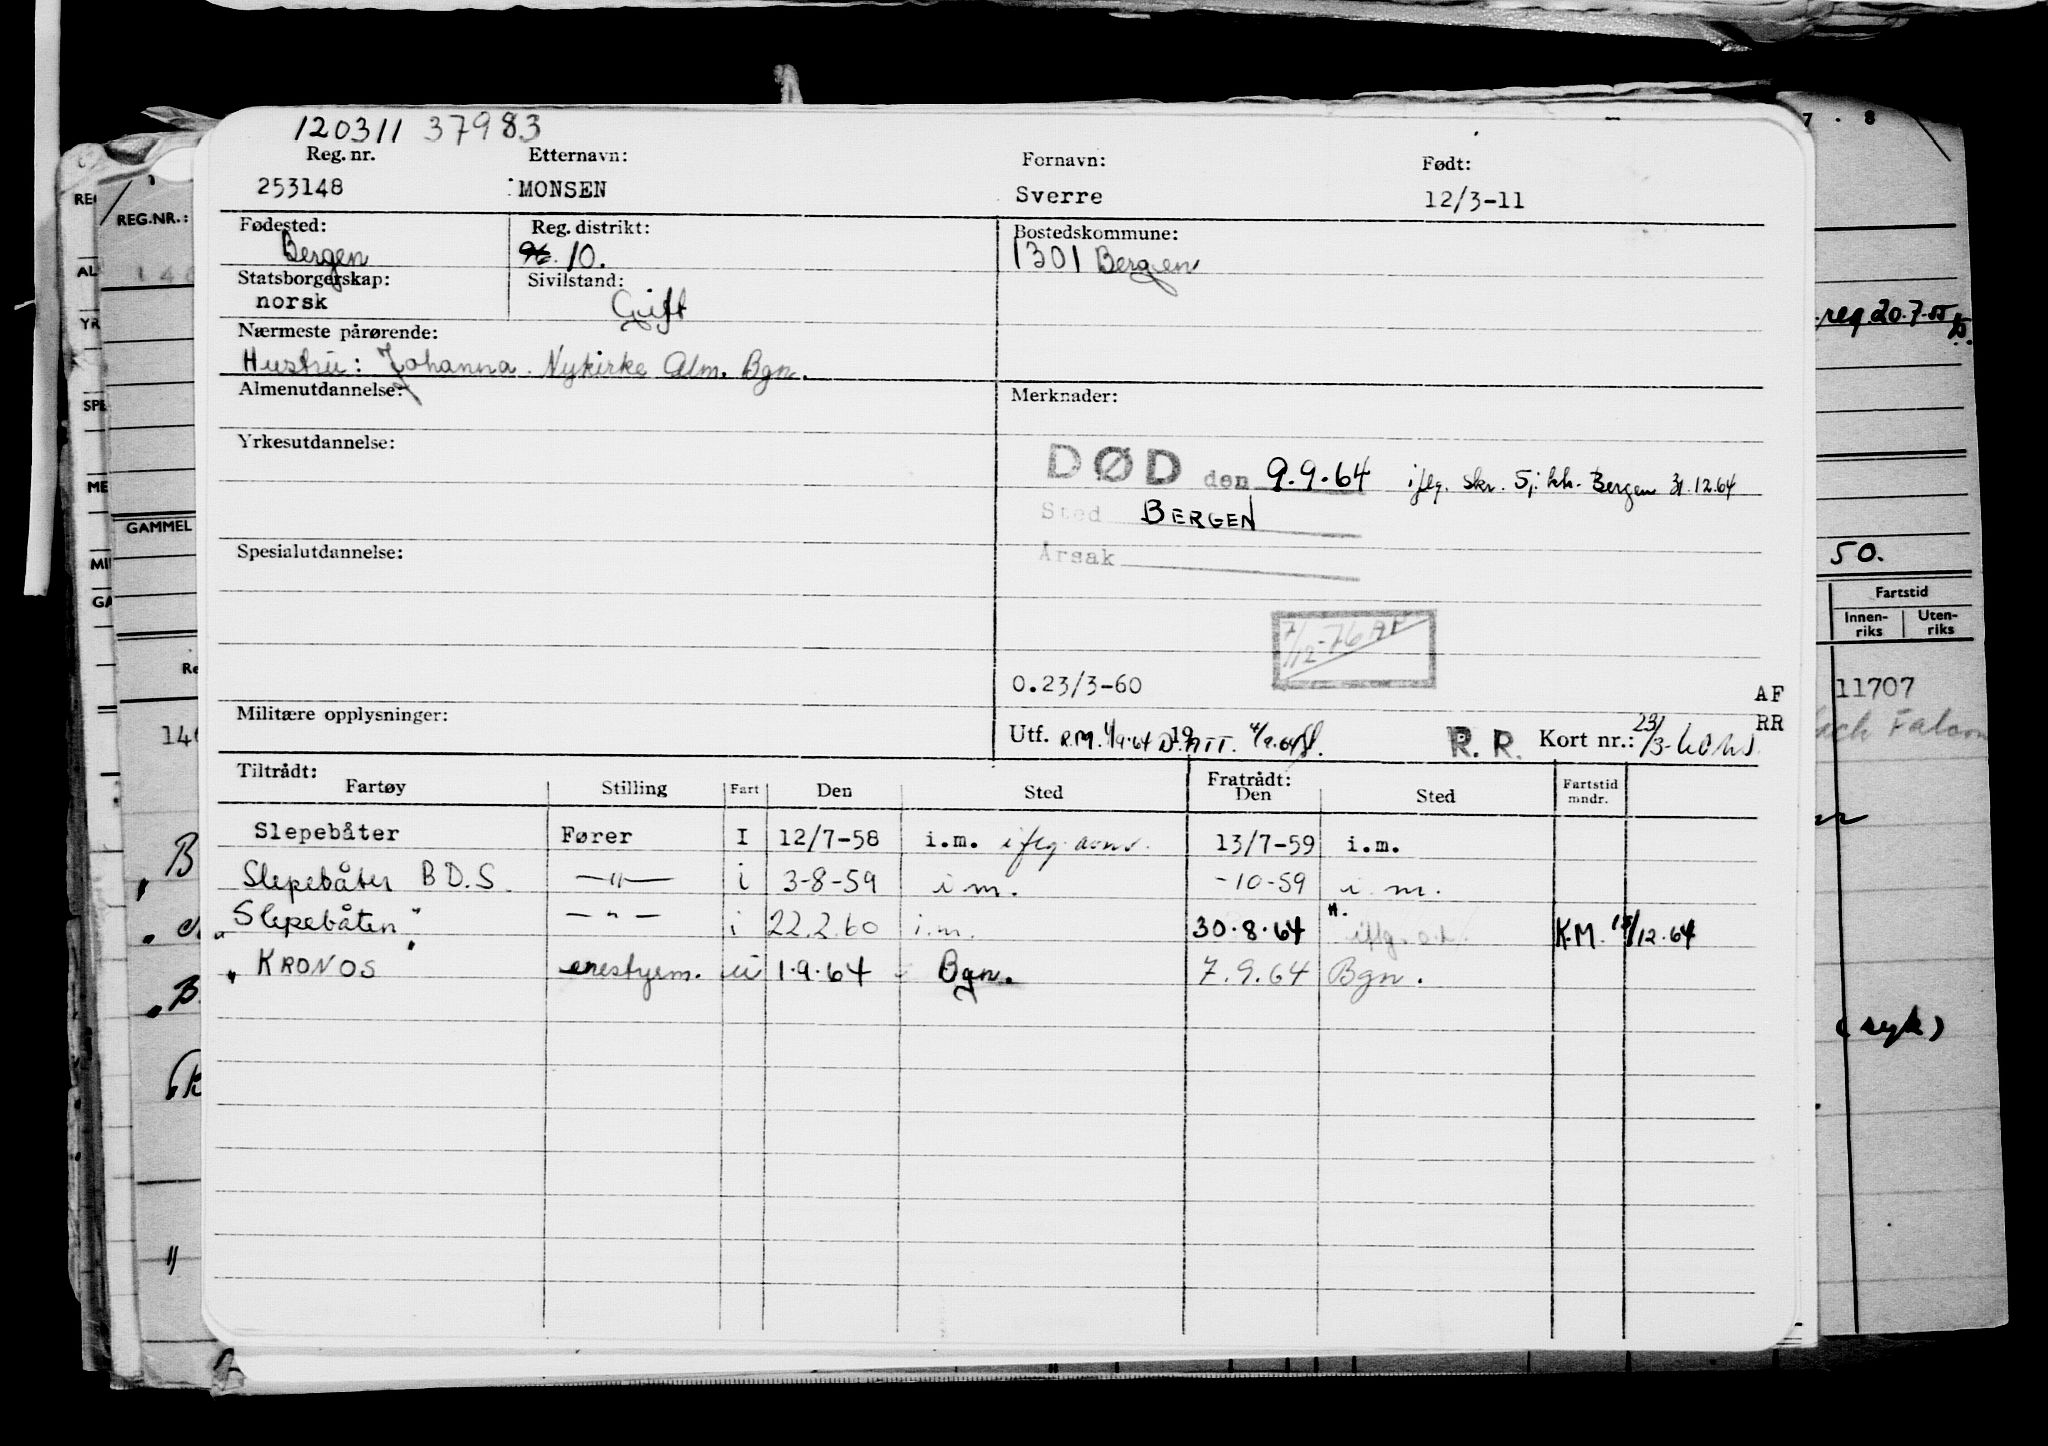 120311 37983
Reg. nr. Etternavn: Fornavn: Født:
253148 MONSEN Sverre 12/3-11
Fødested: Reg. distrikt: Bostedskommune:
Bergen 10. 1301 Bergen
Statsborgerskap: Sivilstand:
norsk Gift
Nærmeste pårørende:
Hustru: Johanna. Nykirke Alm. Bgn.
Almenutdannelse: Merknader:
Yrkesutdannelse:
DØD den 9.9.64 iflg. skr. Sj. kh. Bergen 31.12.64
Sted BERGEN
Spesialutdannelse: Årsak
7/12-76 AF
0.23/3-60 AF
Militære opplysninger: RR
Utf. R.M. 1/9.64 19 R.R. Kort nr.: 23/3-60
Tiltrådt: Fratrådt:
Fartøy Stilling Fart Den Sted Den Sted Fartstid mndr.
Slepebåter Fører I 12/7-58 i.m. iflg. 13/7-59 i.m.
Slepebåter B.D.S. —"— i 3-8-59 i m. -10-59 i m.
Slepebåten " — " — i 22.2.60 i.m. 30.8.64 iflg. K.M. /12.64
"KRONOS" 1.9.64 Bgn. 7.9.64 Bgn.
REG.NR.:
GAMMEL
7 . 8
reg. 20.7.55
50.
Fartstid
Innen-riks Uten-riks
11707
(syk)